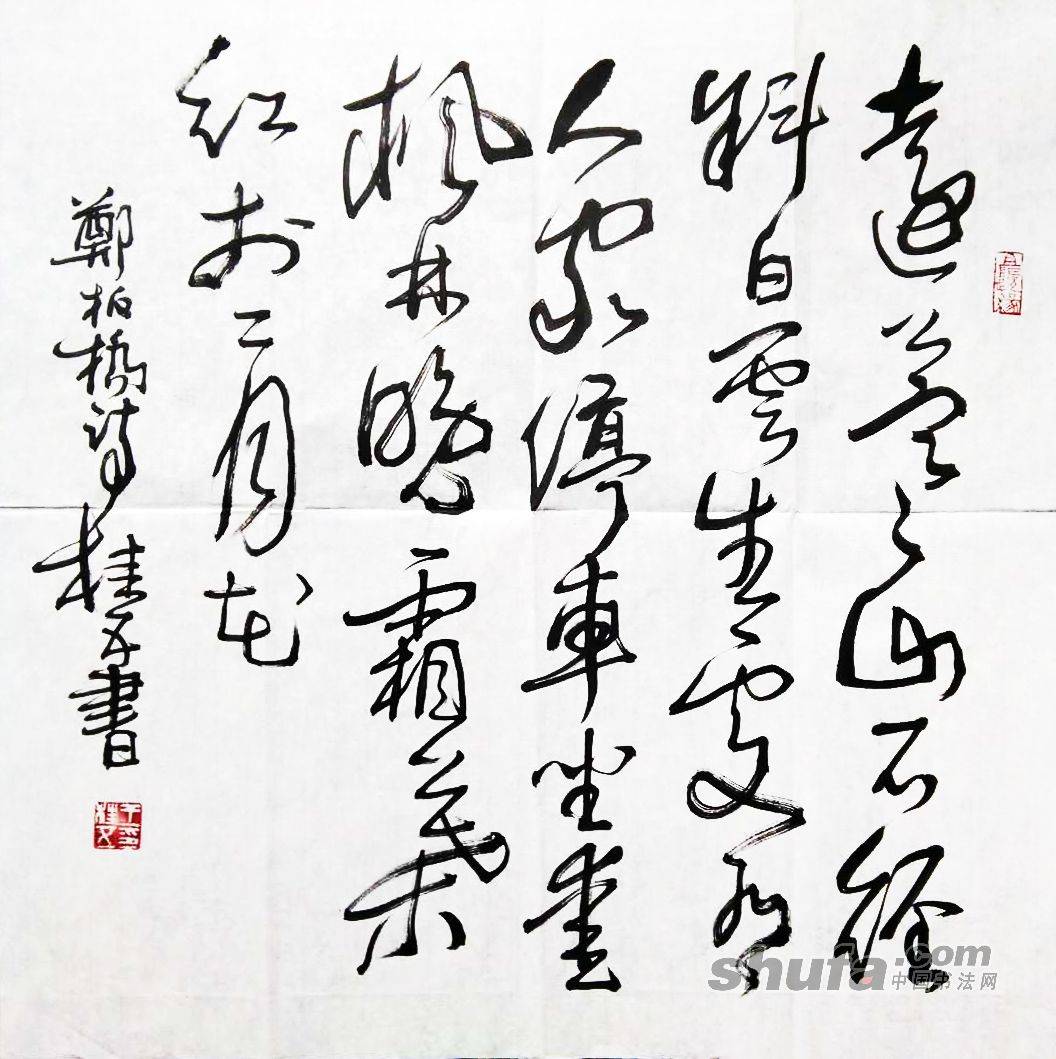 遠上寒山石徑
斜白雲生處有
人家停車坐愛
楓林晚霜葉
紅於二月花
鄭柏橋詩桂書
shufa.com
中国书法网